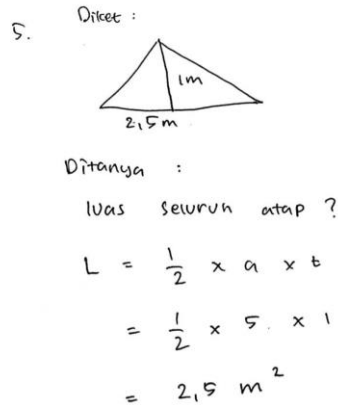 5. Diket :
1m
2,5m
Ditanya :
luas seluruh atap ?
L = 1/2 x a x t
= 1/2 x 5. x 1
= 2,5 m²